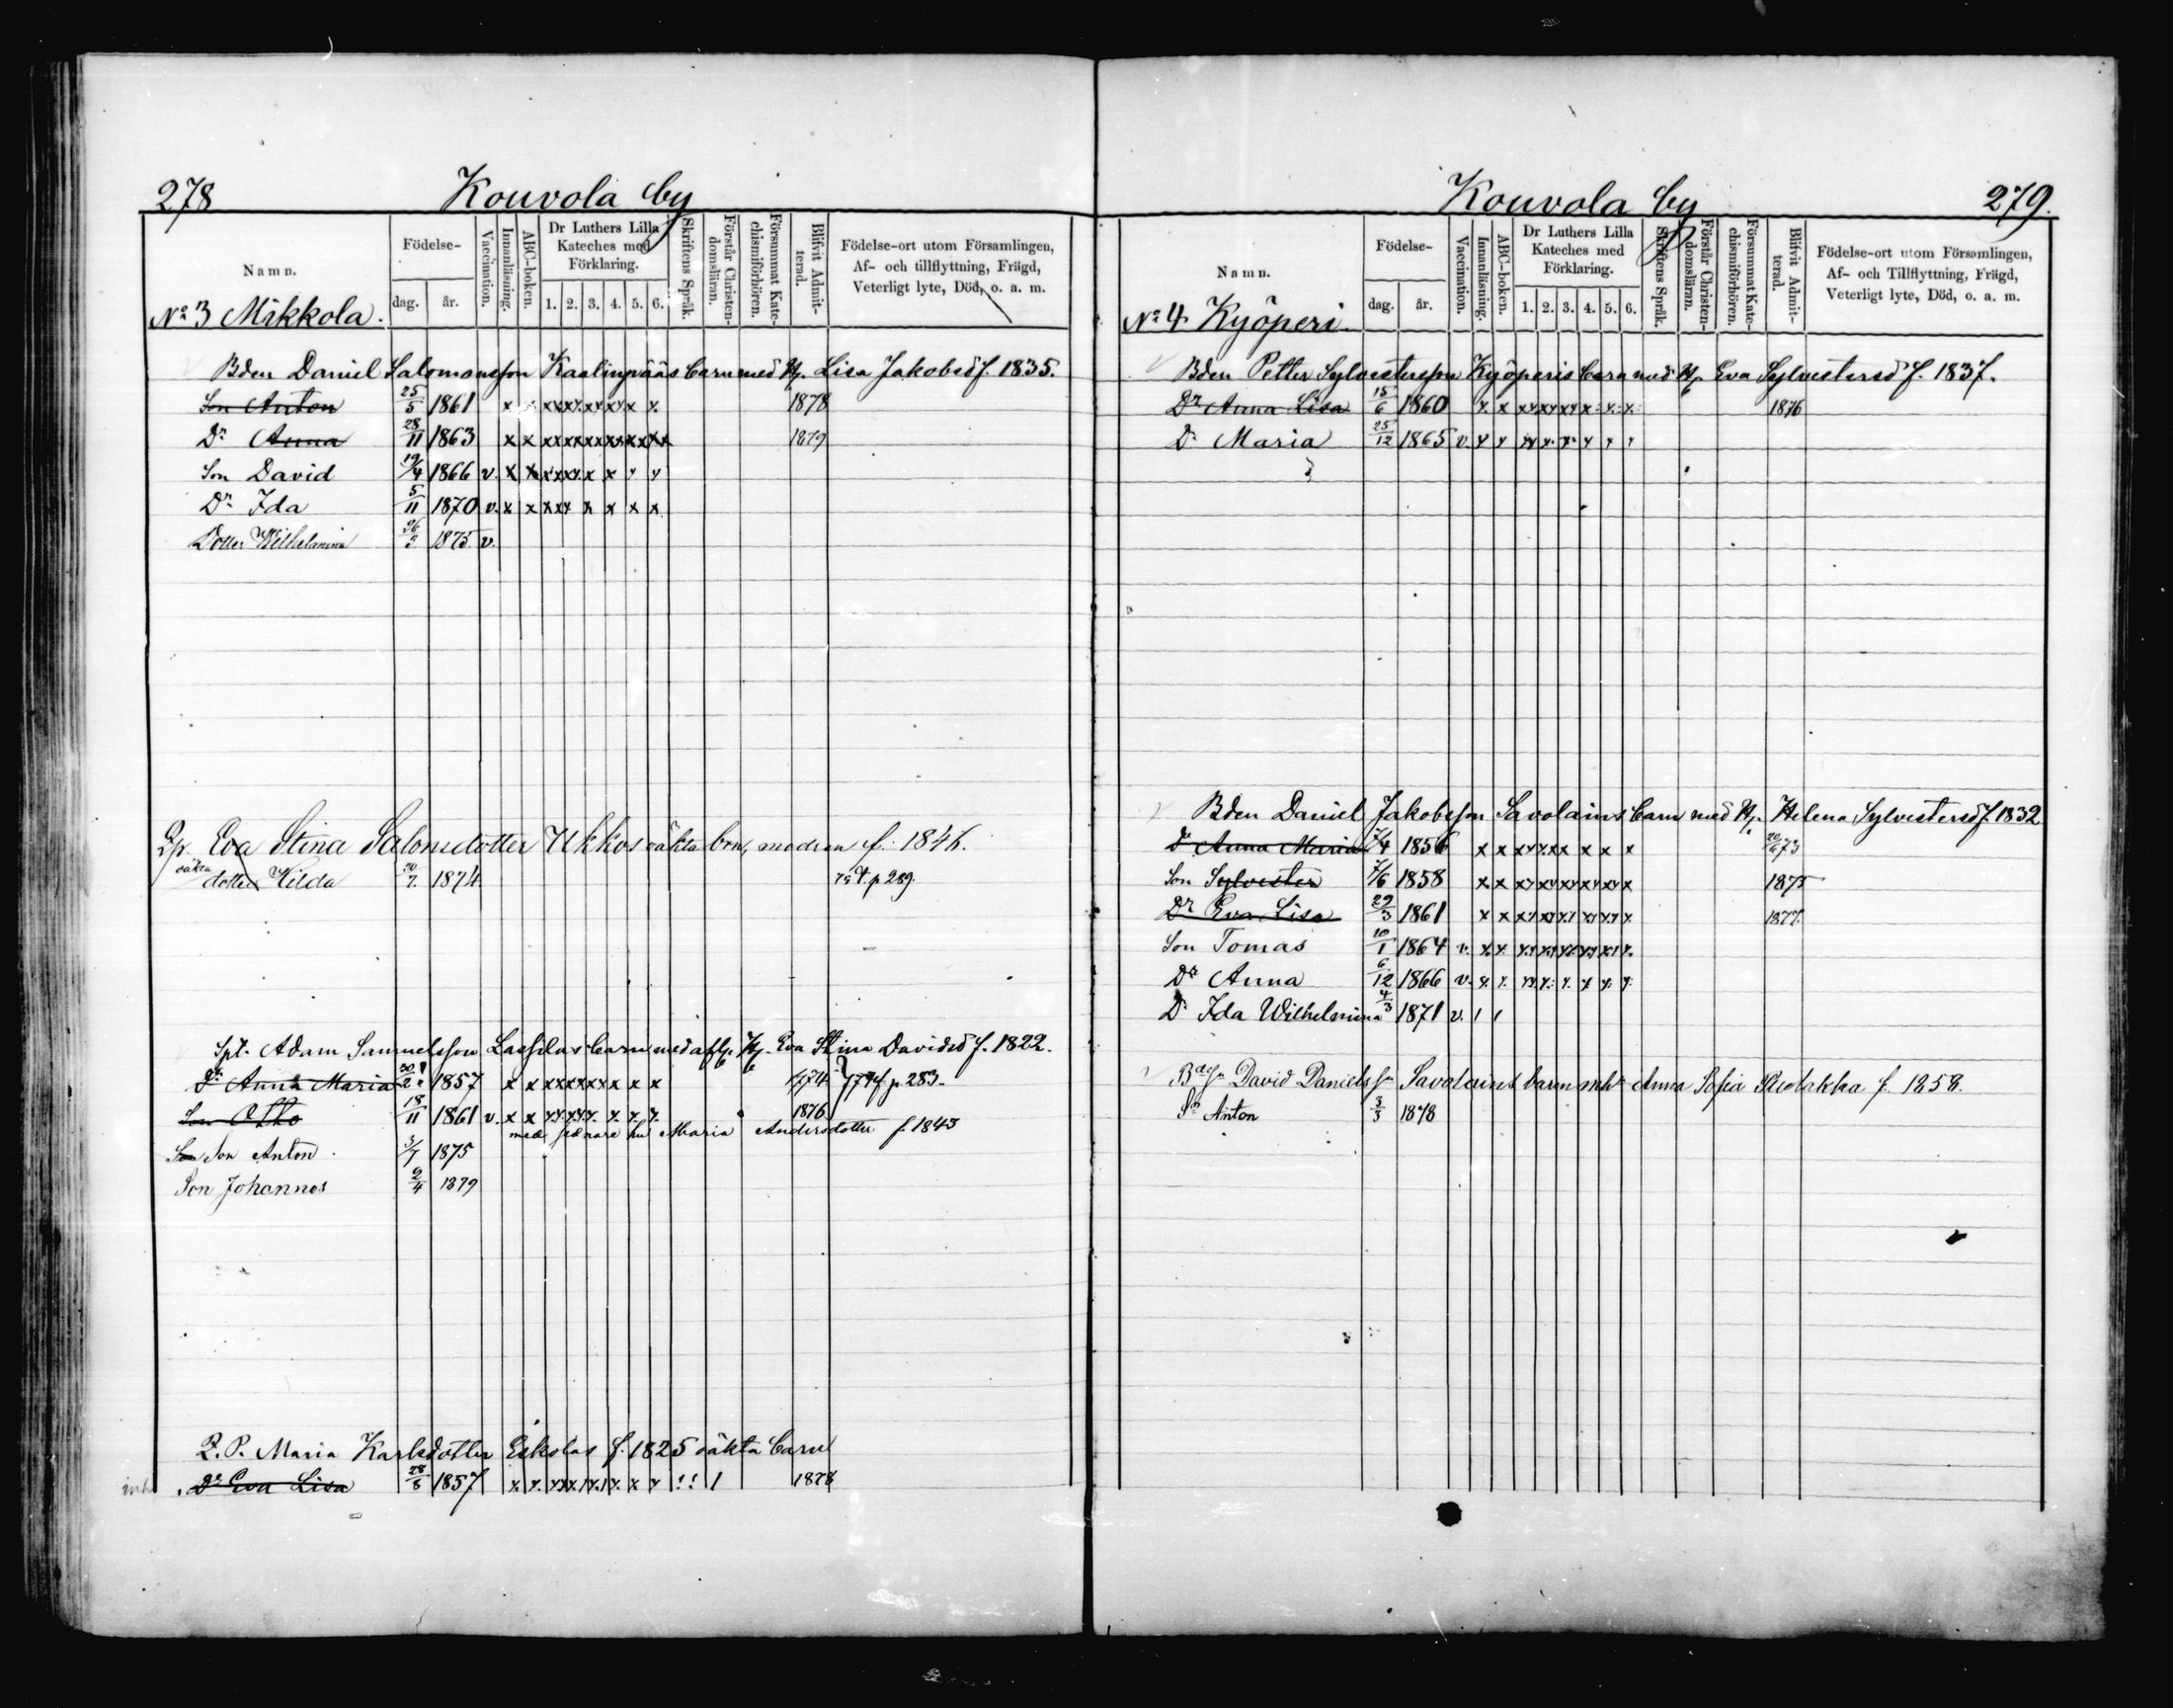 278 Kouvola by
Namn. Födelse- dag. år. Vaccination. Innanläsning. ABC-boken. Dr Luthers Lilla Kateches med Förklaring. 1. 2. 3. 4. 5. 6. Skriftens Språk. Förstår Christendomsläran. Försummat Katechismiförhören. Blifvit Admitterad. Födelse-ort utom Församlingen, Af- och tillflyttning, Frägd, Veterligt lyte, Död, o. a. m.
No 3 Mikkola.
Bden Daniel Salomonsson Kaalinpääs barn med H. Lisa Jakobsd f. 1835.
Son Anton 25/5 1861 1878
Dr Anna 28/11 1863 1879
Son David 19/4 1866 v.
Dr Ida 5/11 1870 v.
Dotter Wilhelmina 1875 v.
Eva Stina Salomsdotter Ukkos oäkta brn, modren f. 1846.
oäkta dotter Hilda 1874 p 289.
Spt. Adam Samuelsson Lassilas barn med afl. H. Eva Stina Davidsd f. 1822.
Dr Anna Maria 1857 1874 p. 283.
Son Otto 18/11 1861 v. 1876
med sednare hu Maria Andersdotter f. 1843
Son Son Anton 3/7 1875
Son Johannes 2/4 1879
Q. P. Maria Karlsdotter Eskolas f. 1825 oäkta barn
inh. Dr Eva Lisa 1857 1878
Kouvola by 279.
Namn. Födelse- dag. år. Vaccination. Innanläsning. ABC-boken. Dr Luthers Lilla Kateches med Förklaring. 1. 2. 3. 4. 5. 6. Skriftens Språk. Förstår Christendomsläran. Försummat Katechismiförhören. Blifvit Admitterad. Födelse-ort utom Församlingen, Af- och Tillflyttning, Frägd, Veterligt lyte, Död, o. a. m.
No 4 Kyöperi
Bden Petter Sylvestersson Kyöperis barn med H. Eva Sylvestersd f. 1837.
Dr Anna Lisa 15/6 1860 1876
Dr Maria 25/12 1865 v.
Bden Daniel Jakobsson Savolains barn med H. Helena Sylvestersd f 1832
Dr Anna Maria 7/4 1856 20/6 73
Son Sylvester 7/6 1858 1875
Dr Eva Lisa 29/3 1861 1877.
Son Tomas 10/1 1864 v.
Dr Anna 6/12 1866 v.
Dr Ida Wilhelmina 4/3 1871 v.
David Danielsson Savolains barn mh Anna Sofia f. 1858.
Sn Anton 3/3 1878